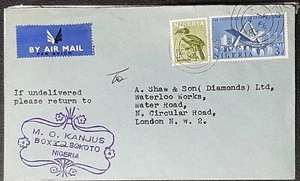 BY AIR MAIL
PAR AVION
NIGERIA
NIGERIA
If undelivered
please return to
M. O. KANJUS
BOX 52 SOKOTO
NIGERIA
A. Shaw & Son( Diamonds) Ltd,
Waterloo Works,
Water Road,
N. Circular Road,
London N. W. 2.